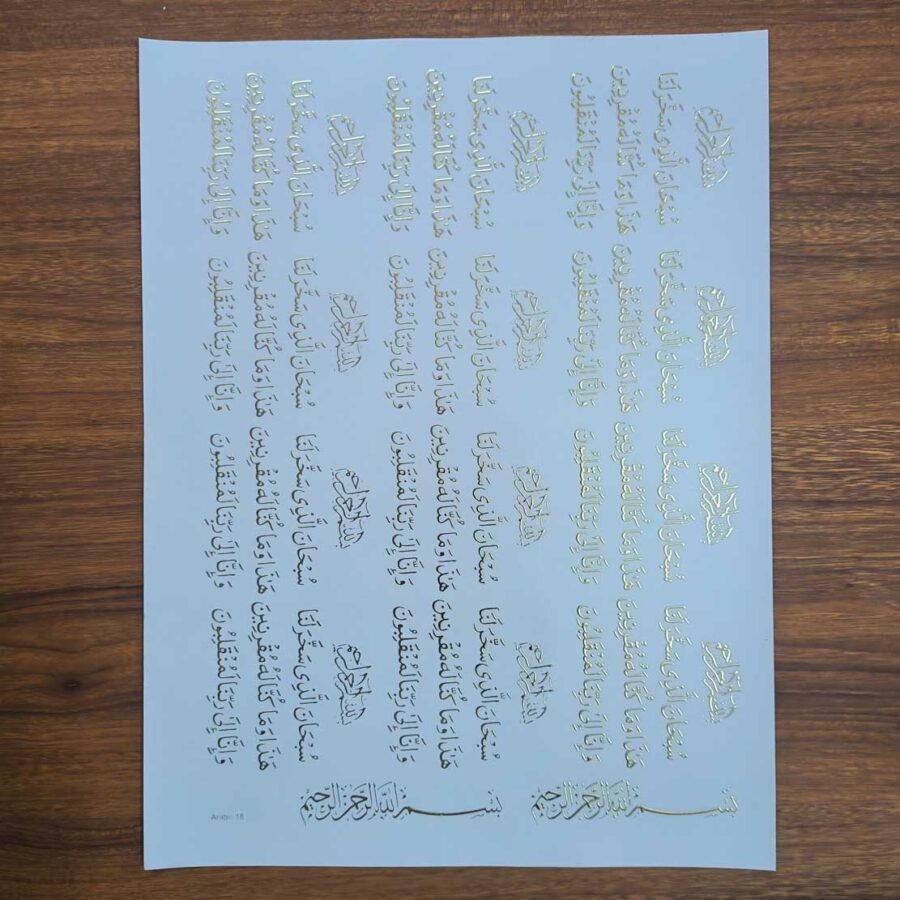 بسم الله الرحمن الرحيم
سُبْحَانَ الَّذِي سَخَّرَ لَنَا
هَذَا وَمَا كُنَّا لَهُ مُقْرِنِينَ
وَإِنَّا إِلَى رَبِّنَا لَمُنْقَلِبُونَ
بسم الله الرحمن الرحيم
سُبْحَانَ الَّذِي سَخَّرَ لَنَا
هَذَا وَمَا كُنَّا لَهُ مُقْرِنِينَ
وَإِنَّا إِلَى رَبِّنَا لَمُنْقَلِبُونَ
بسم الله الرحمن الرحيم
سُبْحَانَ الَّذِي سَخَّرَ لَنَا
هَذَا وَمَا كُنَّا لَهُ مُقْرِنِينَ
وَإِنَّا إِلَى رَبِّنَا لَمُنْقَلِبُونَ
بسم الله الرحمن الرحيم
سُبْحَانَ الَّذِي سَخَّرَ لَنَا
هَذَا وَمَا كُنَّا لَهُ مُقْرِنِينَ
وَإِنَّا إِلَى رَبِّنَا لَمُنْقَلِبُونَ
بسم الله الرحمن الرحيم
سُبْحَانَ الَّذِي سَخَّرَ لَنَا
هَذَا وَمَا كُنَّا لَهُ مُقْرِنِينَ
وَإِنَّا إِلَى رَبِّنَا لَمُنْقَلِبُونَ
بسم الله الرحمن الرحيم
سُبْحَانَ الَّذِي سَخَّرَ لَنَا
هَذَا وَمَا كُنَّا لَهُ مُقْرِنِينَ
وَإِنَّا إِلَى رَبِّنَا لَمُنْقَلِبُونَ
بسم الله الرحمن الرحيم
سُبْحَانَ الَّذِي سَخَّرَ لَنَا
هَذَا وَمَا كُنَّا لَهُ مُقْرِنِينَ
وَإِنَّا إِلَى رَبِّنَا لَمُنْقَلِبُونَ
بسم الله الرحمن الرحيم
سُبْحَانَ الَّذِي سَخَّرَ لَنَا
هَذَا وَمَا كُنَّا لَهُ مُقْرِنِينَ
وَإِنَّا إِلَى رَبِّنَا لَمُنْقَلِبُونَ
بسم الله الرحمن الرحيم
سُبْحَانَ الَّذِي سَخَّرَ لَنَا
هَذَا وَمَا كُنَّا لَهُ مُقْرِنِينَ
وَإِنَّا إِلَى رَبِّنَا لَمُنْقَلِبُونَ
بسم الله الرحمن الرحيم
سُبْحَانَ الَّذِي سَخَّرَ لَنَا
هَذَا وَمَا كُنَّا لَهُ مُقْرِنِينَ
وَإِنَّا إِلَى رَبِّنَا لَمُنْقَلِبُونَ
بسم الله الرحمن الرحيم
سُبْحَانَ الَّذِي سَخَّرَ لَنَا
هَذَا وَمَا كُنَّا لَهُ مُقْرِنِينَ
وَإِنَّا إِلَى رَبِّنَا لَمُنْقَلِبُونَ
بسم الله الرحمن الرحيم
سُبْحَانَ الَّذِي سَخَّرَ لَنَا
هَذَا وَمَا كُنَّا لَهُ مُقْرِنِينَ
وَإِنَّا إِلَى رَبِّنَا لَمُنْقَلِبُونَ
بسم الله الرحمن الرحيم
بسم الله الرحمن الرحيم
Arabic 18